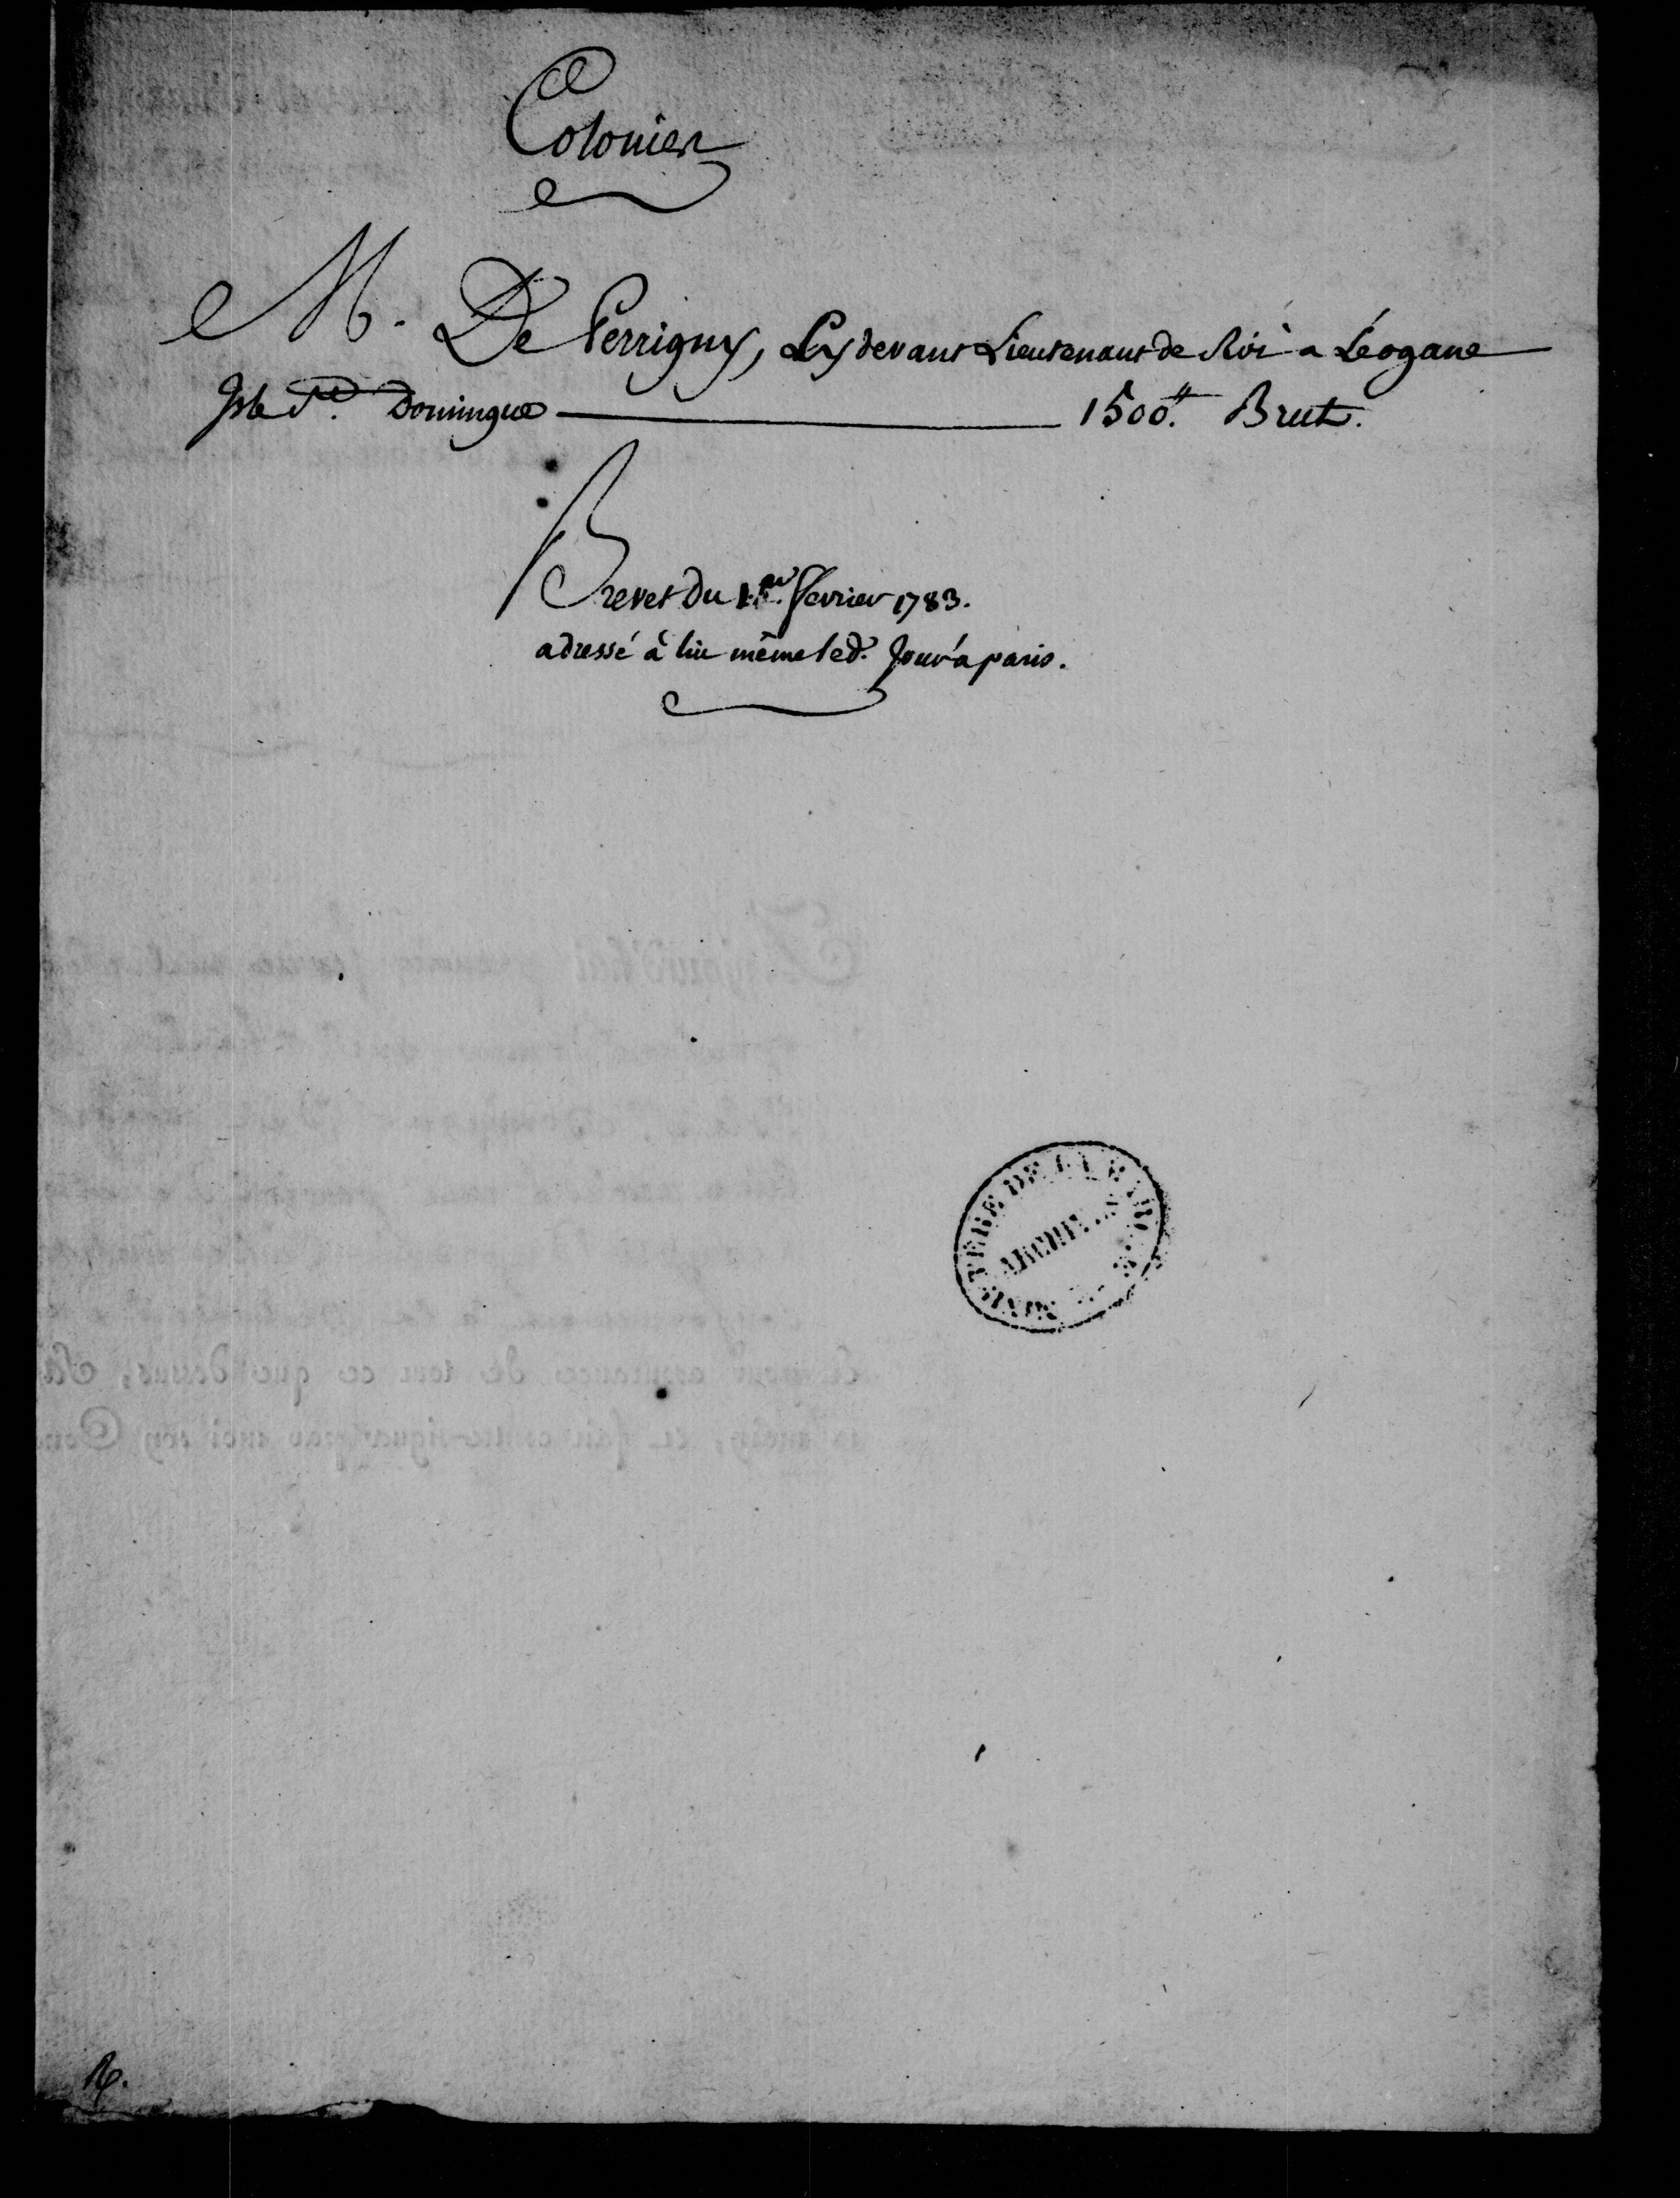 Colonies
M. De Perrigny, Cy devant Lieutenant de Roi a Léogane
Isle St. Domingue 1500.# Brut.
Brevet du 1.er fevrier 1783.
adressé à lui même led. Jour à paris.
MINISTERE DE LA
ARCHIVES
R.